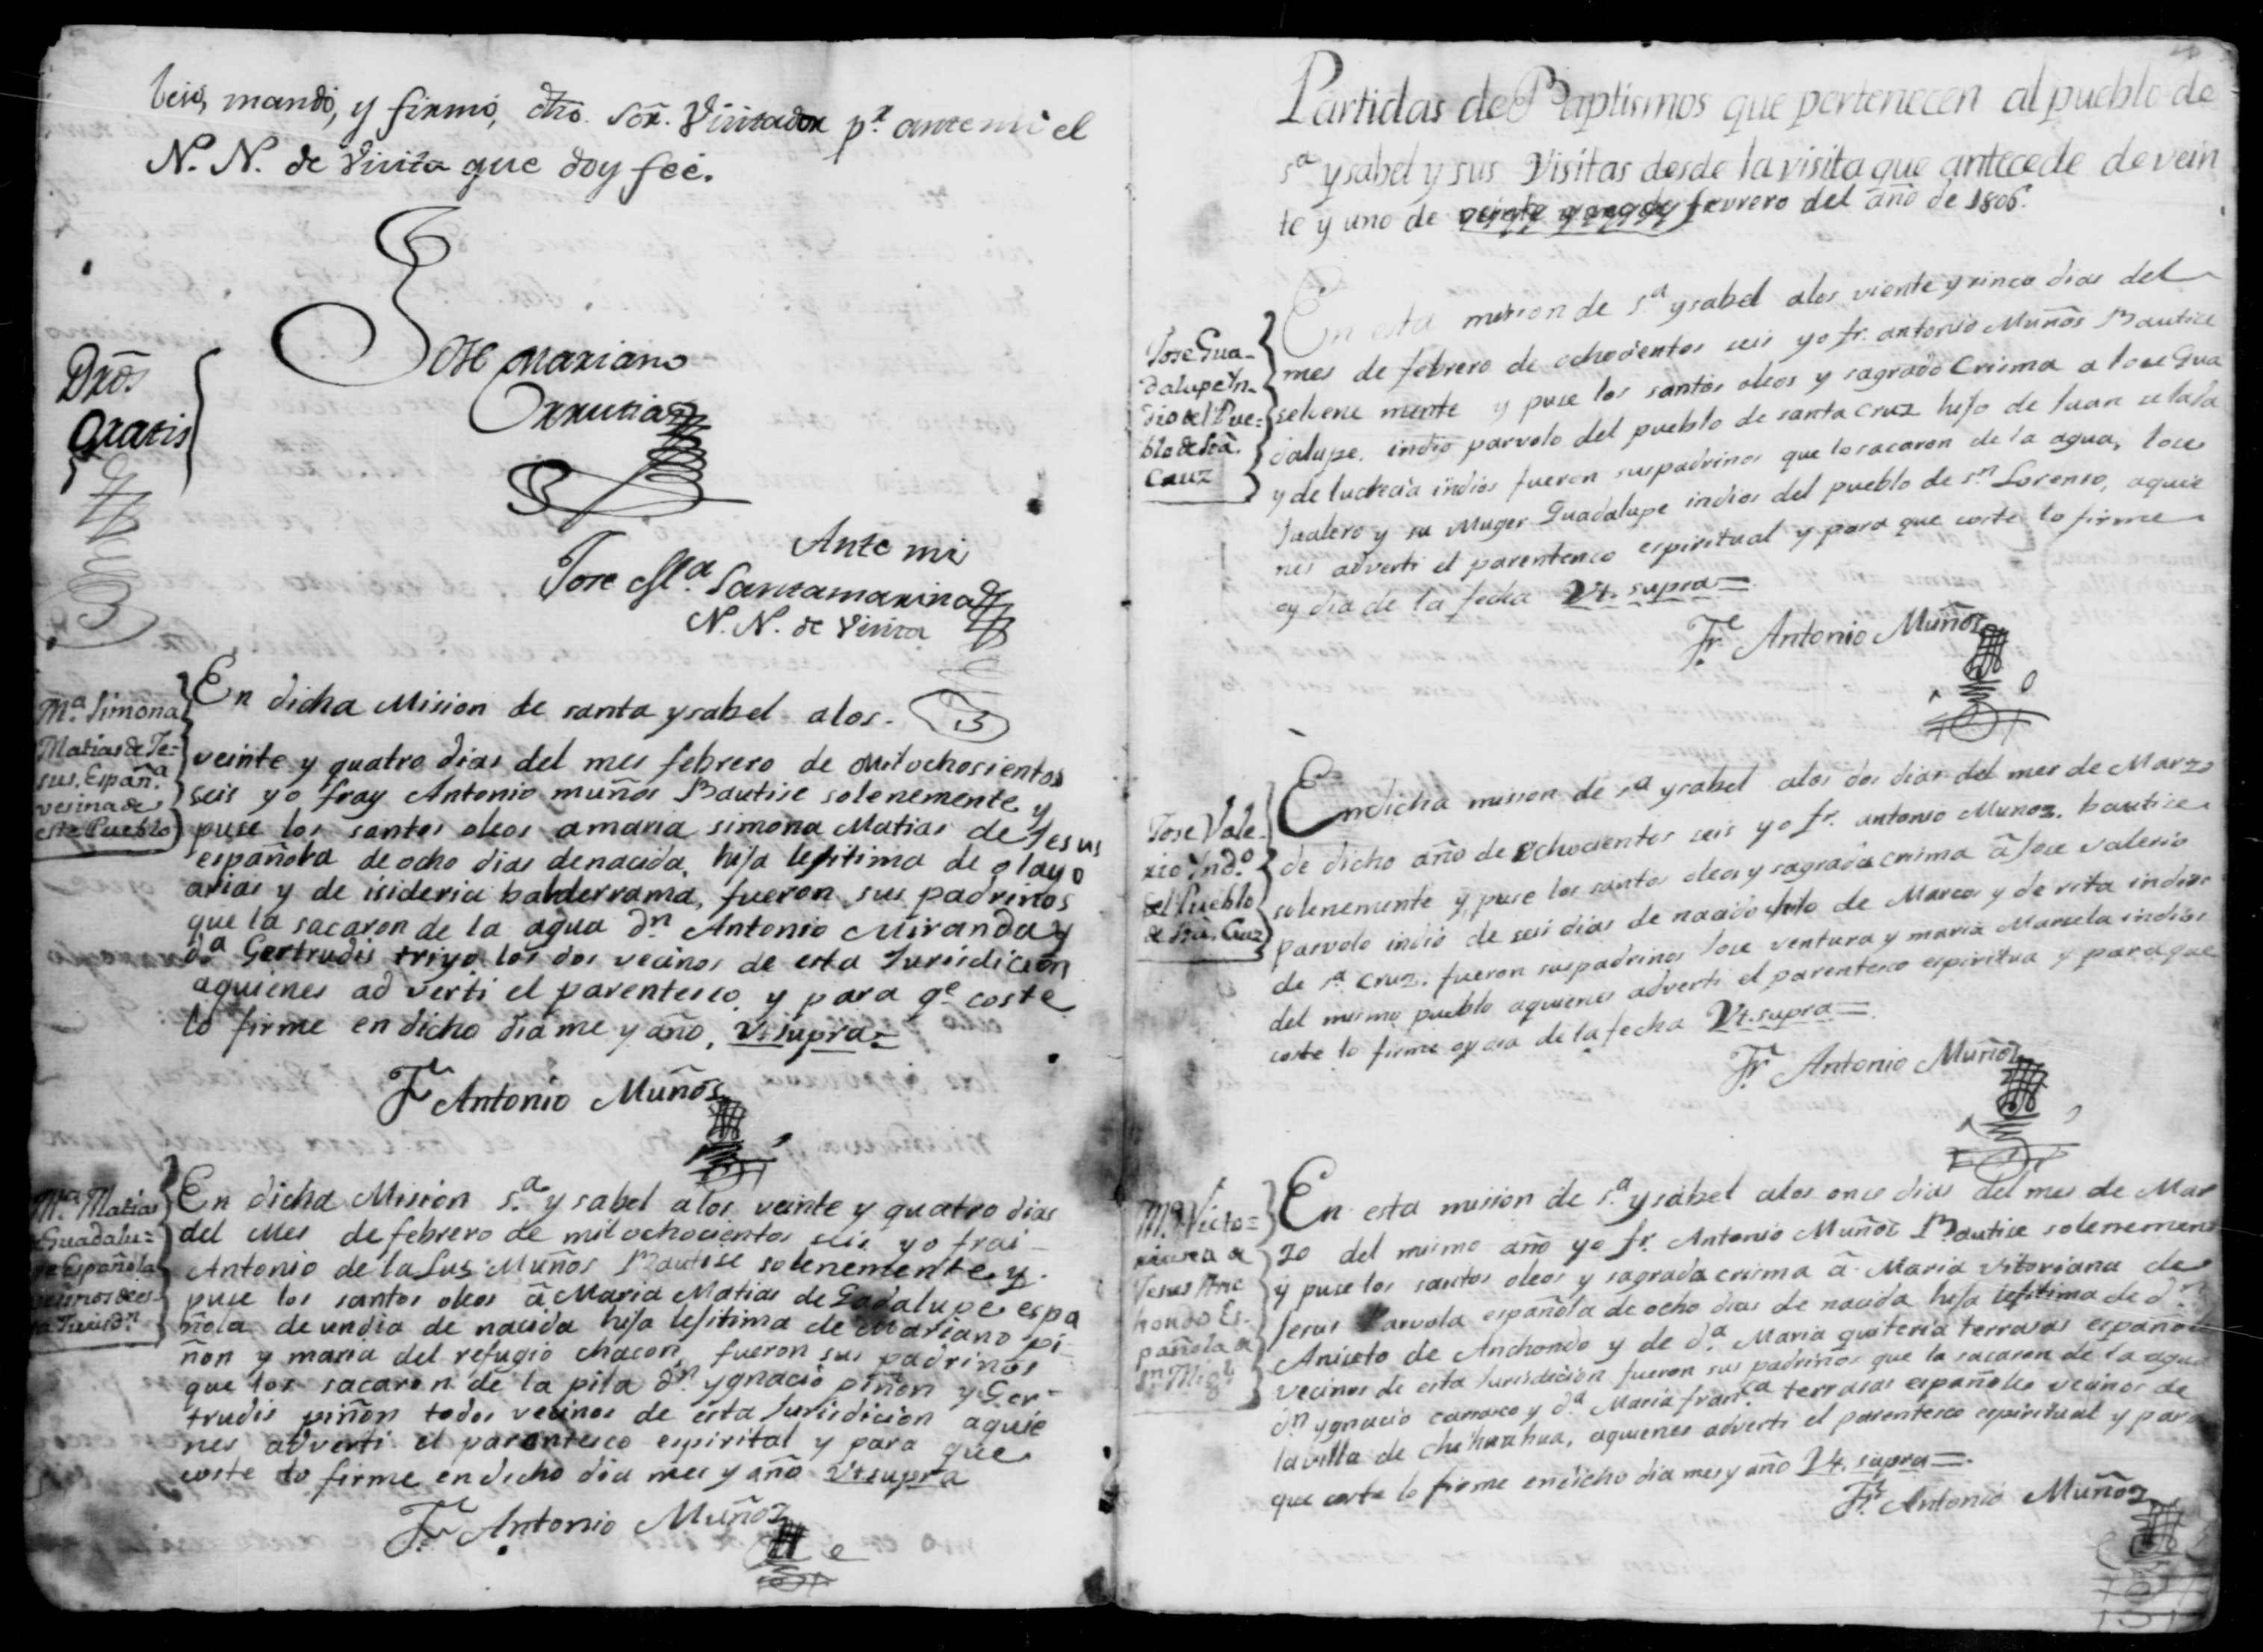 veió, mandó, y firmó, dho. Sor. Visitador pr. ante mi el
N. N. de Visita que doy feé.
Jose Mariano
Urrutia
Dros.
Gratis
Ante mi
Jose Ma. Santamarina
N. N. de Visita
Ma. Simona
Matias de Je=
sus. España.
vesina de
este Pueblo
En dicha Mision de santa ysabel alos.
veinte y quatro dias del mes febrero de Mil ochosientos
seis yo fray Antonio muños Bautise solenemente y
puse los santos oleos a maria simona Matias de Jesus
española de ocho dias de nacida, hija lejitima de olayo
arias y de isideria balderrama, fueron sus padrinos
que la sacaron de la agua dn. Antonio Miranda y
da. Gertrudis triyo los dos vecinos de esta Jurisdicion
aquienes ad verti el parentesco y para qe coste
lo firme en dicho dia me y año, Vt supra=
Fr. Antonio Muños
Ma. Matias
Guadalu=
pe Española
vecinos de es-
ta Jurisdn.
En dicha Mision sa. ysabel alos veinte y quatro dias
del Mes de febrero de mil ochocientos seis yo frai
Antonio de la Lus Muños Bautise solenemente y.
puse los santos oleos â Maria Matias de Gadalupe espa
ñola de un dia de nacida hija lejitima de Mariano pi
ñon y maria del refugio chacon, fueron sus padrinos
que los sacaron de la pila dn. ygnacio piñon y Ger-
trudis piñon todos vecinos de esta Jurisdicion aquie
nes adverti el parentesco espirital y para que
coste lo firme en dicho dia mes y año Vt supra
Fr. Antonio Muñoz
Partidas de Baptismos que pertenecen al pueblo de
sa ysabel y sus Visitas desde la visita que antecede de vein
te y uno de febrero del año de 1806.
Jose Gua-
dalupe Yn-
dio del Pue=
blo de Sta.
Cruz
En esta mision de sa. ysabel alos viente y sinco dias del
mes de febrero de ochocientos seis yo fr. antonio Muños Bautise
solene mente y puse los santos oleos y sagrado Crisma a Jose Gua
dalupe. indio parvolo del pueblo de santa cruz hijo de Juan
y de lucrecia indios fueron sus padrinos que lo sacaron de la agua, Jose
y su Muger Guadalupe indios del pueblo de sn. Lorenso, aquie
nes adverti el parentesco espiritual y para que coste lo firme
oy dia de la fecha Vt. supra=
Fr. Antonio Muños
Jose Vale-
rio Yndo.
del Pueblo
de Sta. Cruz
En dicha mision de sa. ysabel alos dos dias del mes de Marzo
de dicho año de ochocientos seis yo fr. antonio Muñoz. bautise
solenemente y puse los santos oleos y sagrada crisma â Jose valerio
parvolo indio de seis dias de nacido hijo de Marcos y de rita indios
de sa. cruz. fueron sus padrinos Jose ventura y maria Manuela indios
del mismo pueblo aquienes adverti el parentesco espiritua y para que
coste lo firme oy dia de la fecha Vt. supra=
Fr. Antonio Muñoz
Ma. Victo=
riana de
Jesus Anc
hondo Es-
pañola de
Sn. Migl.
En esta mision de sa. ysabel alos once dias del mes de Mar
zo del mismo año yo fr. Antonio Muños Bautise solenement
y puse los santos oleos y sagrada crisma â Maria vitoriana de
Jesus Parvola española de ocho dias de nacida hija lejitima de dn.
Aniceto de Anchondo y de da. Maria quiteria terrasas español
vecinos de esta Jurisdicion fueron sus padrinos que la sacaron de la agua
dn ygnacio carrasco y da Maria franca terrasas españoles vecinos de
la villa de chihuahua, aquienes adverti el parentesco espiritual y para
que coste lo firme en dicho dia mes y año Vt. supra=.
Fr. Antonio Muñoz